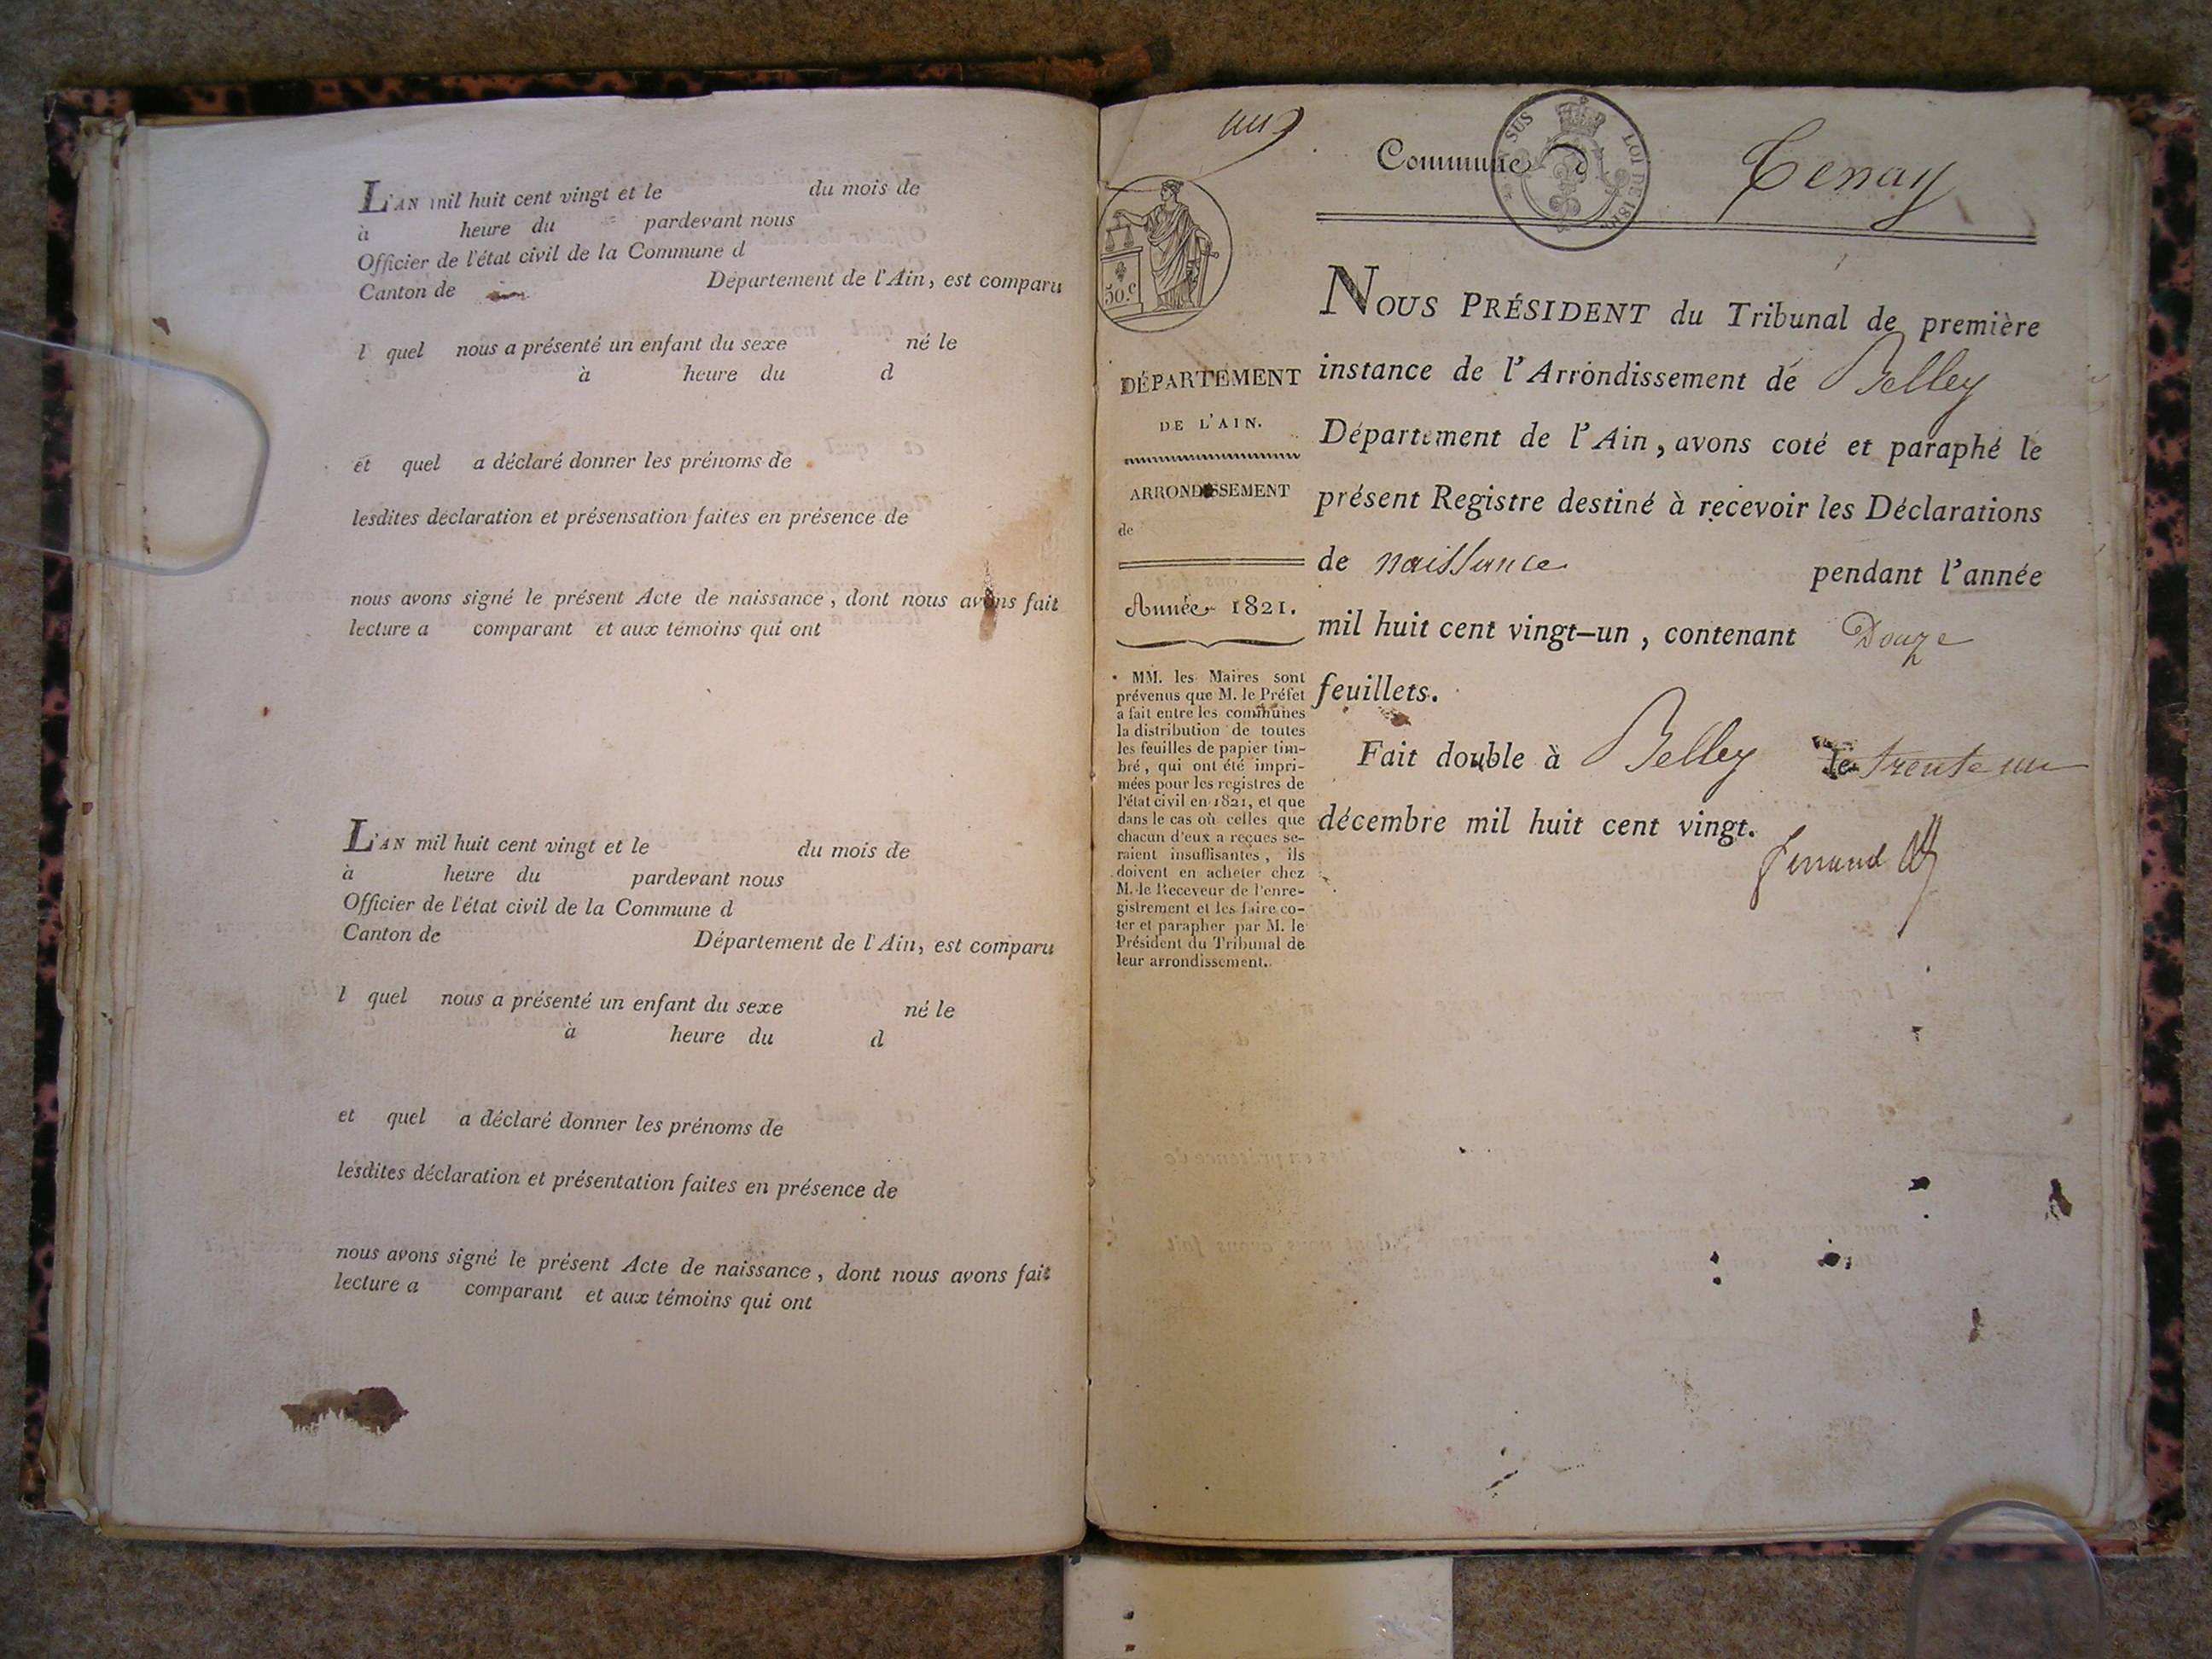 L'AN mil huit cent vingt et le du mois de
à heure du pardevant nous
Officier de l'état civil de la Commune d
Canton de Département de l'Ain, est comparu
l quel nous a présenté un enfant du sexe né le
à heure du d
et quel a déclaré donner les prénoms de
lesdites déclaration et présensation faites en présence de
nous avons signé le présent Acte de naissance, dont nous avons fait
lecture a comparant et aux témoins qui ont
L'AN mil huit cent vingt et le du mois de
à heure du pardevant nous
Officier de l'état civil de la Commune d
Canton de Département de l'Ain, est comparu
l quel nous a présenté un enfant du sexe né le
à heure du d
et quel a déclaré donner les prénoms de
lesdites déclaration et présentation faites en présence de
nous avons signé le présent Acte de naissance, dont nous avons fait
lecture a comparant et aux témoins qui ont
Commune d Tenay
SUS LOI DE
50.c
DÉPARTEMENT
DE L'AIN.
ARRONDISSEMENT
de
Année 1821.
MM. les Maires sont
prévenus que M. le Préfet
a fait entre les communes
la distribution de toutes
les feuilles de papier tim-
bré, qui ont été impri-
mées pour les registres de
l'état civil en 1821, et que
dans le cas où celles que
chacun d'eux a reçues se-
raient insuffisantes, ils
doivent en acheter chez
M. le Receveur de l'enre-
gistrement et les faire co-
ter et parapher par M. le
Président du Tribunal de
leur arrondissement.
NOUS PRÉSIDENT du Tribunal de première
instance de l'Arrondissement de Belley
Département de l'Ain, avons coté et paraphé le
présent Registre destiné à recevoir les Déclarations
de naissance pendant l'année
mil huit cent vingt-un, contenant Douze
feuillets.
Fait double à Belley le trente un
décembre mil huit cent vingt.